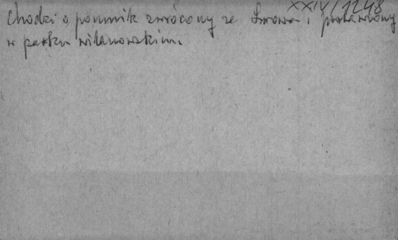 XXIV/1248
Chodzi o pomnik zwrócony ze Lwowa i postawiony
w parku wilanowskim.